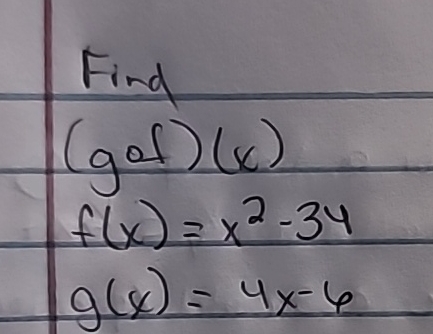 Find
(gof)(x)
f(x) = x² - 34
g(x) = 4x - 6